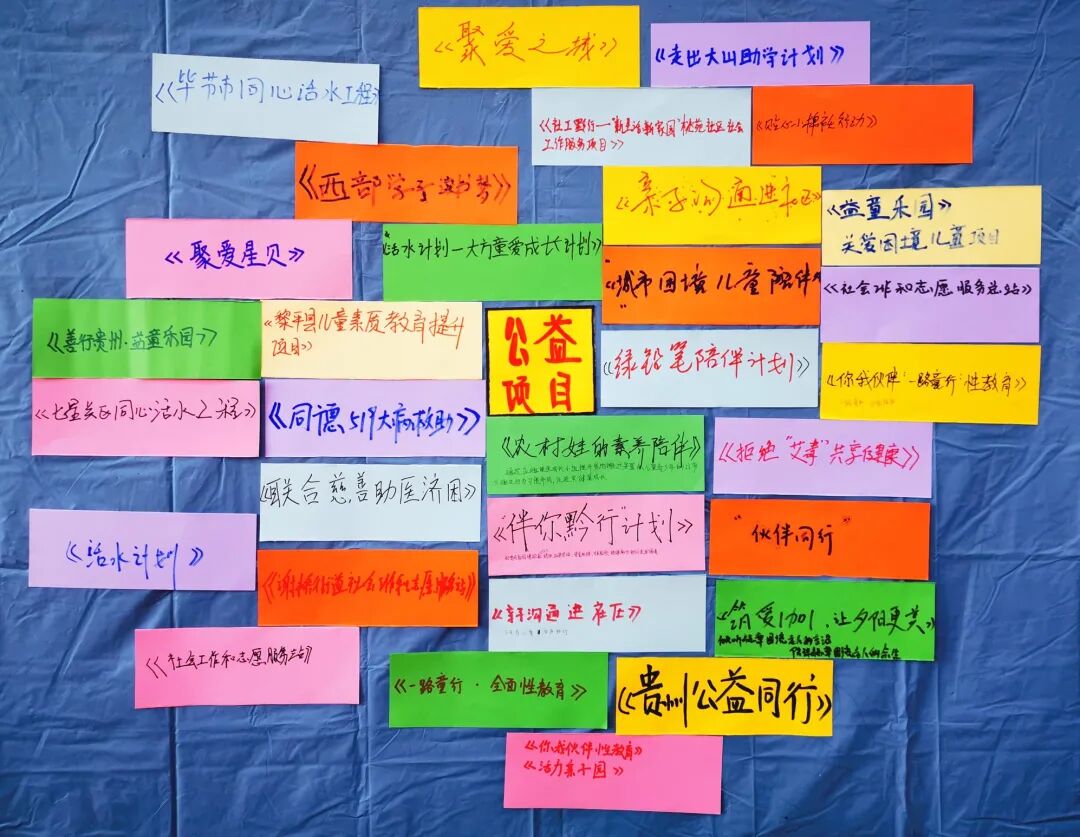 《聚爱之城》
《走出大山助学计划》
《毕节市同心活水工程》
《社工黔行一"新生活新家园"桃苑社区社会
工作服务项目》
《西部学子读书梦》
亲子沟通进社区
《益童乐园》
关爱困境儿童项目
《聚爱星贝》
活水计划一大方童爱成长计划》
城市困境儿童陪伴
《社会工作和志愿服务总站》
《善行贵州·益童乐园》
《黎平县儿童素质教育提升
项目》
公益
项目
绿铅笔陪伴计划》
《你我伙伴"一路童行"性教育》
《七星关区同心活水工程》
《同德519大病救助》
《农村娃的素养陪伴》
《拒绝"艾毒"共享健康》
《联合慈善助医济困》
"伴你黔行"计划》
"伙伴同行"
《活水计划》
街道社会工作和志愿服务站》
《亲子沟通进社区》
爱1加1，让夕阳更美》
《社会工作和志愿服务站》
《一路童行·全面性教育》
《贵州公益同行》
《你我伙伴性教育》
《活力亲子园》